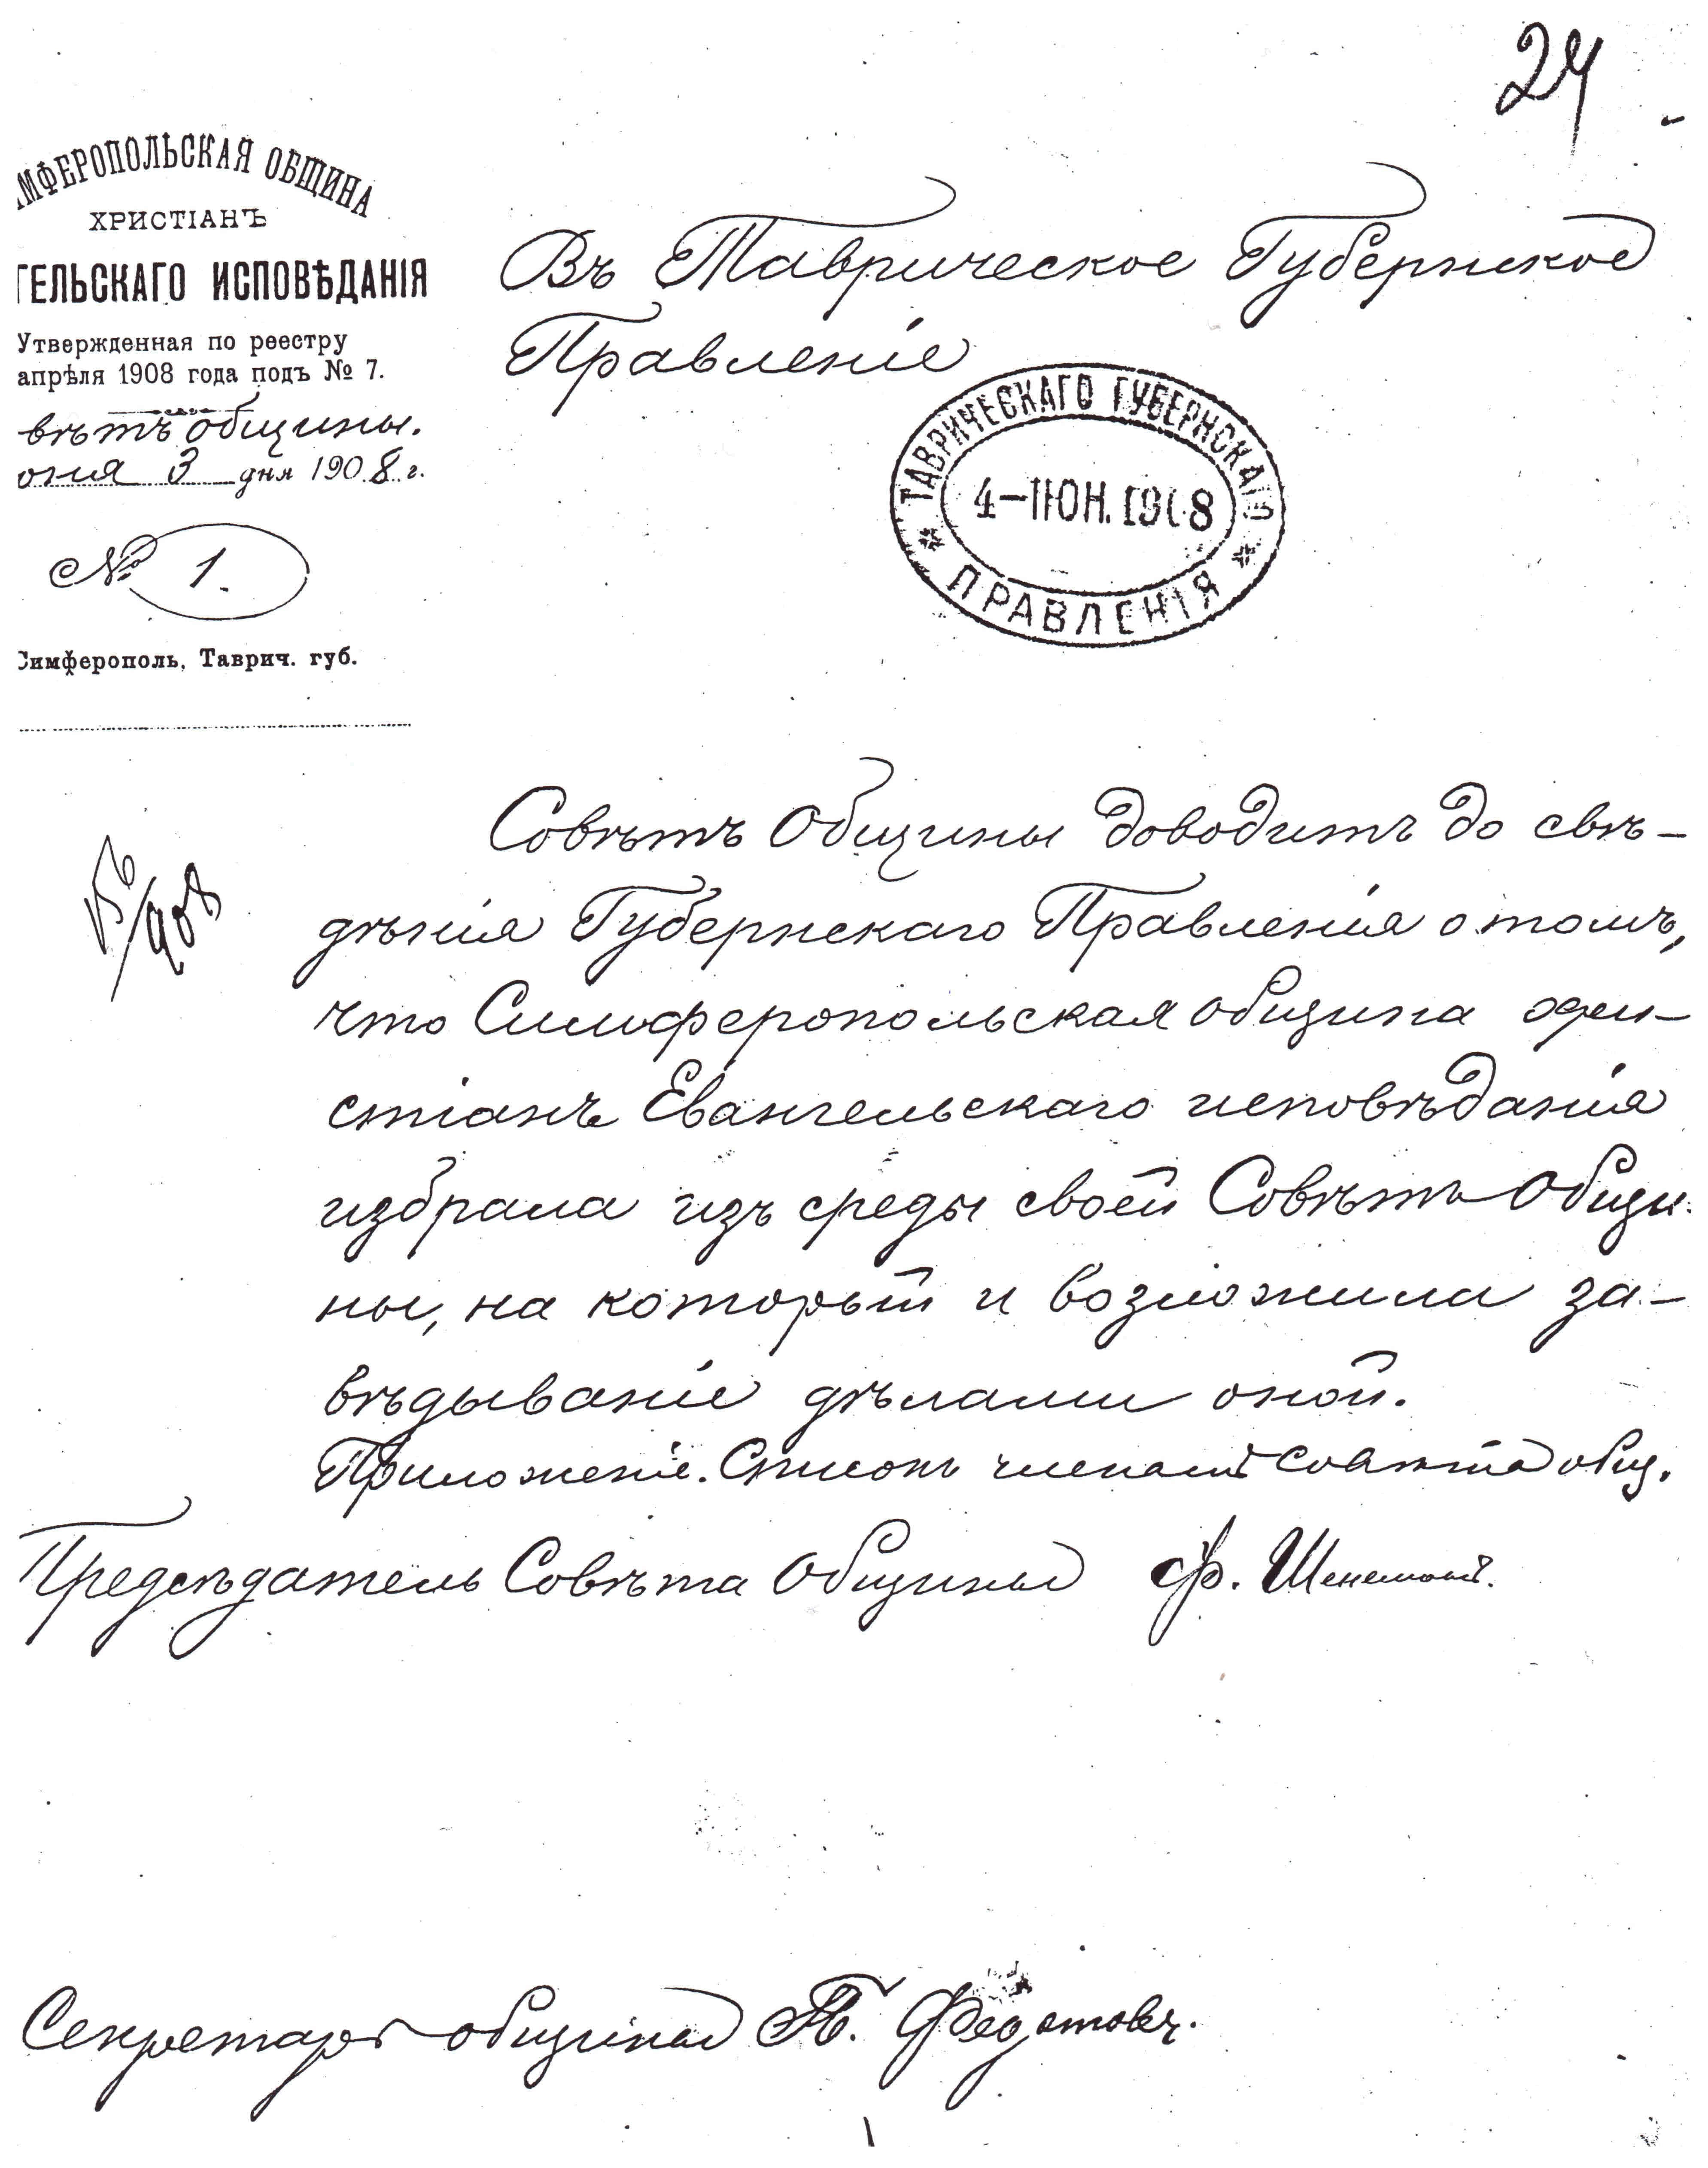 24
МФЕРОПОЛЬСКАЯ ОБЩИНА
ХРИСТІАНЪ
ГЕЛЬСКАГО ИСПОВѢДАНІЯ
Утвержденная по реестру
апрѣля 1908 года подъ № 7.
вѣтъ общины.
юня 3 дня 1908 г.
№ 1.
Симферополь, Таврич. губ.
Въ Таврическое Губернское
Правленіе
ТАВРИЧЕСКАГО ГУБЕРНСКАГО
4-ІЮН. 1908
ПРАВЛЕНІЯ
Совѣтъ Общины доводитъ до свѣ-
дѣнія Губернскаго Правленія о томъ,
что Симферопольская община хри-
стіанъ Евангельскаго исповѣданія
избрала изъ среды своей Совѣтъ Общи-
ны, на который и возложила за-
вѣдываніе дѣлами оной.
Приложеніе. Списокъ членамъ Совѣта общ.
Предсѣдатель Совѣта Общины Ф.
Секретарь общины П. Федотовъ.